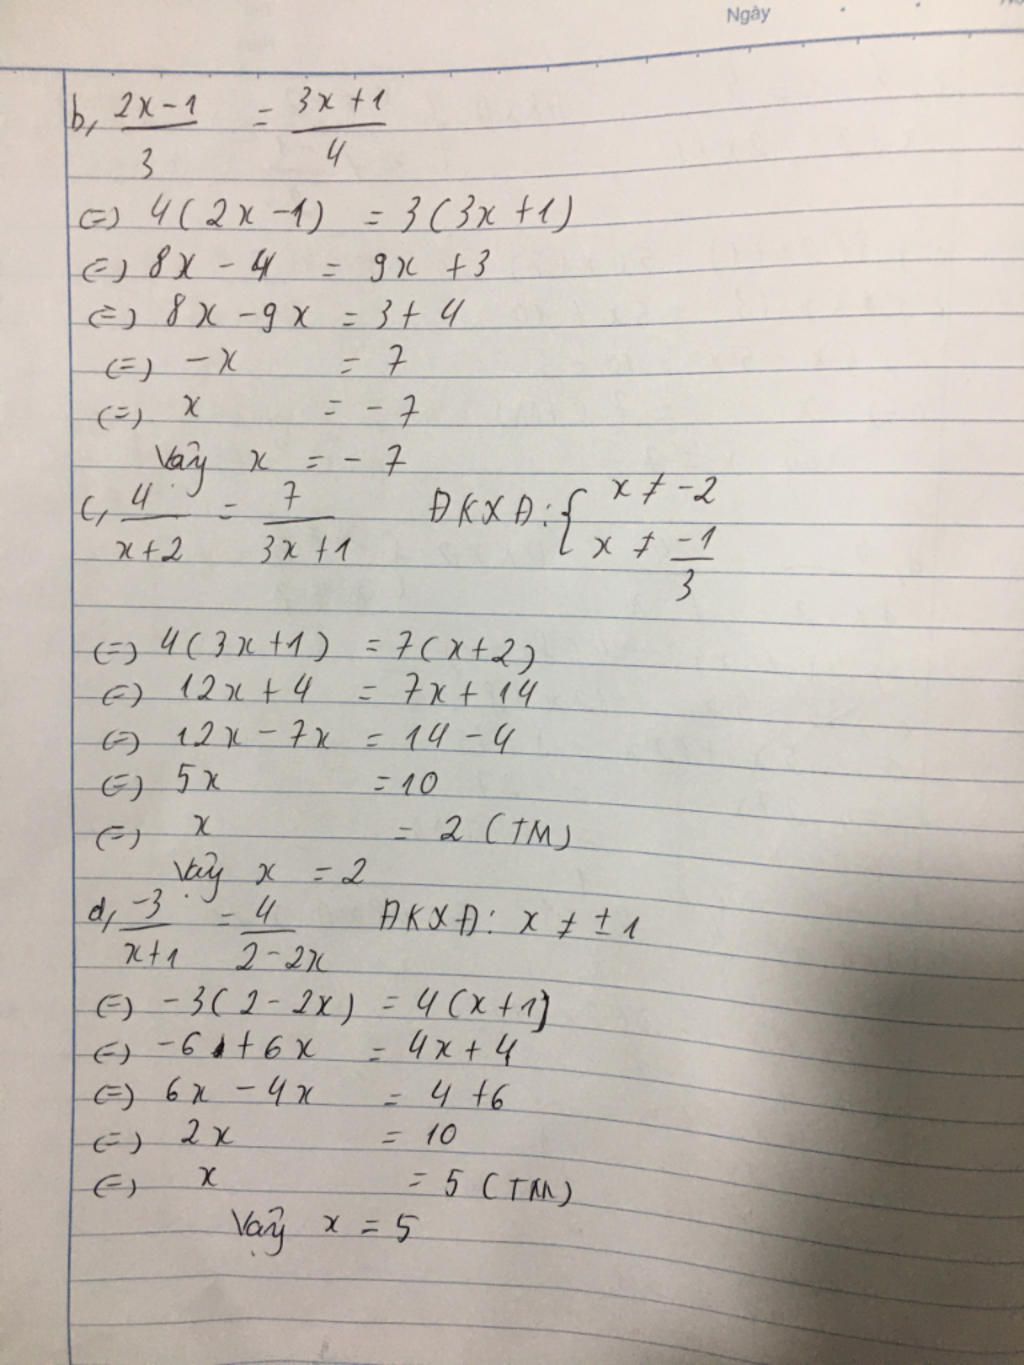 Ngày
b, (2x-1)/3 = (3x+1)/4
(=) 4(2x-1) = 3(3x+1)
(=) 8x - 4 = 9x + 3
(=) 8x - 9x = 3 + 4
(=) -x = 7
(=) x = -7
Vậy x = -7
c, 4/(x+2) = 7/(3x+1) ĐKXĐ: { x ≠ -2
x ≠ -1/3
(=) 4(3x+1) = 7(x+2)
(=) 12x + 4 = 7x + 14
(=) 12x - 7x = 14 - 4
(=) 5x = 10
(=) x = 2 (TM)
Vậy x = 2
d, -3/(x+1) = 4/(2-2x) ĐKXĐ: x ≠ ±1
(=) -3(2-2x) = 4(x+1)
(=) -6 + 6x = 4x + 4
(=) 6x - 4x = 4 + 6
(=) 2x = 10
(=) x = 5 (TM)
Vậy x = 5